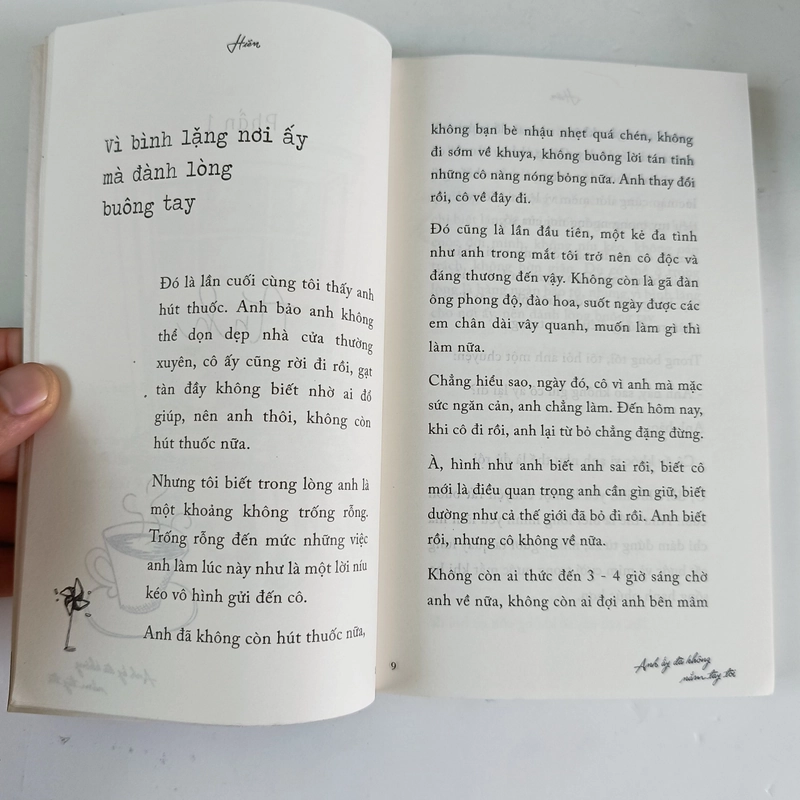 Hiên
Vì bình lặng nơi ấy
mà đành lòng
buông tay
Đó là lần cuối cùng tôi thấy anh
hút thuốc. Anh bảo anh không
thể dọn dẹp nhà cửa thường
xuyên, cô ấy cũng rời đi rồi, gạt
tàn đầy không biết nhờ ai đổ
giúp, nên anh thôi, không còn
hút thuốc nữa.
Nhưng tôi biết trong lòng anh là
một khoảng không trống rỗng.
Trống rỗng đến mức những việc
anh làm lúc này như là một lời níu
kéo vô hình gửi đến cô.
Anh đã không còn hút thuốc nữa,
không bạn bè nhậu nhẹt quá chén, không
đi sớm về khuya, không buông lời tán tỉnh
những cô nàng nóng bỏng nữa. Anh thay đổi
rồi, cô về đây đi.
Đó cũng là lần đầu tiên, một kẻ đa tình
như anh trong mắt tôi trở nên cô độc và
đáng thương đến vậy. Không còn là gã đàn
ông phong độ, đào hoa, suốt ngày được các
em chân dài vây quanh, muốn làm gì thì
làm nữa.
Chẳng hiểu sao, ngày đó, cô vì anh mà mặc
sức ngăn cản, anh chẳng làm. Đến hôm nay,
khi cô đi rồi, anh lại từ bỏ chẳng đặng đừng.
À, hình như anh biết anh sai rồi, biết cô
mới là điều quan trọng anh cần gìn giữ, biết
dường như cả thế giới đã bỏ đi rồi. Anh biết
rồi, nhưng cô không về nữa.
Không còn ai thức đến 3 - 4 giờ sáng chờ
anh về nữa, không còn ai đợi anh bên mâm
9
Anh ấy đã không
nắm tay tôi